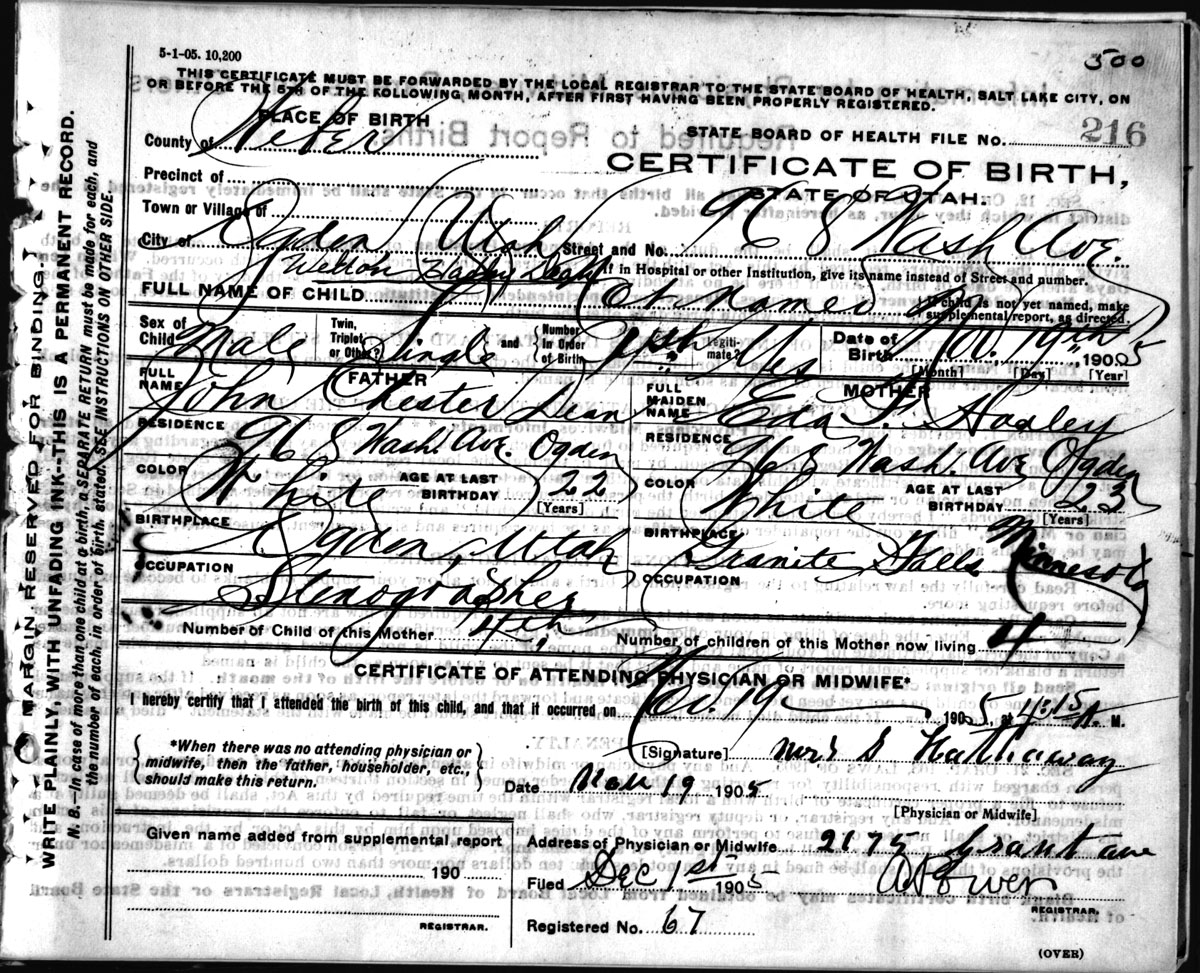 5-1-05. 10,200
500
THIS CERTIFICATE MUST BE FORWARDED BY THE LOCAL REGISTRAR TO THE STATE BOARD OF HEALTH, SALT LAKE CITY, ON
OR BEFORE THE 5TH OF THE FOLLOWING MONTH, AFTER FIRST HAVING BEEN PROPERLY REGISTERED.
PLACE OF BIRTH
STATE BOARD OF HEALTH FILE NO. 216
County of Weber
CERTIFICATE OF BIRTH,
STATE OF UTAH.
Precinct of
Town or Village of
City of Ogden Utah Street and No. Wash Ave.
If in Hospital or other Institution, give its name instead of Street and number.
FULL NAME OF CHILD Not Named
If child is not yet named, make
supplemental report, as directed.
Sex of Child Male Twin, Triplet or Other? Single and Number in Order of Birth Legiti- mate? Yes Date of Birth Nov. 19th 1905
[Month] [Day] [Year]
FATHER
MOTHER
FULL NAME John Chester Dean FULL MAIDEN NAME Eda F. Hadley
RESIDENCE Wash. Ave. Ogden RESIDENCE Wash. Ave Ogden
COLOR White AGE AT LAST BIRTHDAY 22 [Years] COLOR White AGE AT LAST BIRTHDAY 23 [Years]
BIRTHPLACE Ogden, Utah BIRTHPLACE Granite Falls Minnesota
OCCUPATION Stenographer OCCUPATION
Number of Child of this Mother 4th Number of children of this Mother now living 4
CERTIFICATE OF ATTENDING PHYSICIAN OR MIDWIFE*
I hereby certify that I attended the birth of this child, and that it occurred on Nov. 19 1905, at 4:15 A. M.
*When there was no attending physician or
midwife, then the father, householder, etc.,
should make this return.
[Signature] Mrs S Hathaway
Date Nov 19 1905
[Physician or Midwife]
Given name added from supplemental report
190
REGISTRAR.
Address of Physician or Midwife 2175 Grant ave
Filed Dec 1st 1905
REGISTRAR.
Registered No. 67
(OVER)
MARGIN RESERVED FOR BINDING
WRITE PLAINLY, WITH UNFADING INK--THIS IS A PERMANENT RECORD.
N. B.—In case of more than one child at a birth, a SEPARATE RETURN must be made for each, and
the number of each, in order of birth, stated. SEE INSTRUCTIONS ON OTHER SIDE.